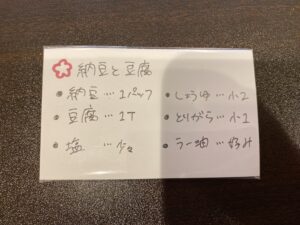 納豆と豆腐
・納豆…1パック
・豆腐…1T
・塩…少々
・しょうゆ…小2
・とりがら…小1
・ラー油…好み